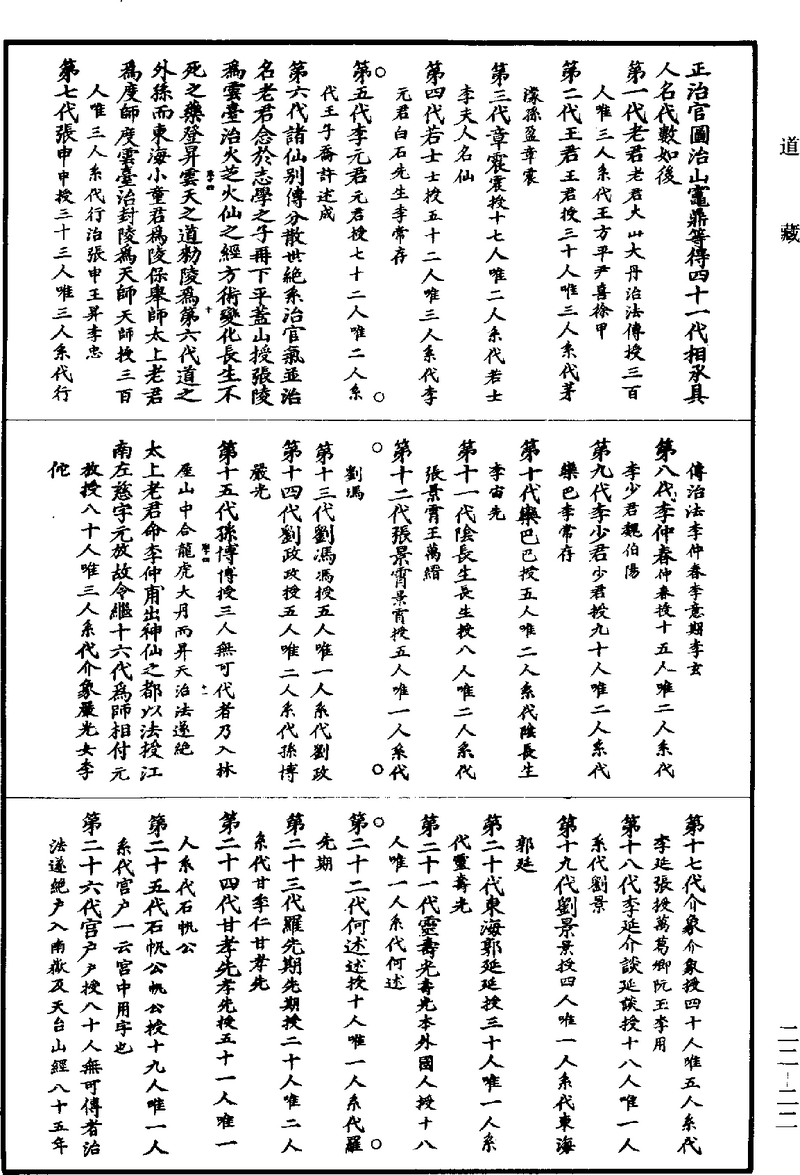 道藏
正治官圖治山竈鼎等得四十一代相承具
人名代數如後
第一代老君老君大山大丹治法傳授三百
人唯三人系代王方平尹喜徐甲
第二代王君王君授三十人唯三人系代茅
濛孫盈章震
第三代章震震授十七人唯二人系代若士
李夫人名仙
第四代若士士授五十二人唯三人系代李
元君白石先生李常存
第五代李元君元君授七十二人唯二人系
代王子喬許述成
第六代諸仙別傳分散世絕系治官氣並治
名老君念於志學之子再下平蓋山授張陵
爲雲臺治火芝火仙之經方術變化長生不
死之藥登昇雲天之道勑陵爲第六代道之
外孫而東海小童君爲陵保舉師太上老君
爲度師度雲臺治封陵爲天師天師授三百
人唯三人系代行治張申王昇李忠
第七代張申申授三十三人唯三人系代行
傳治法李仲春李意期李玄
第八代李仲春仲春授十五人唯二人系代
李少君魏伯陽
第九代李少君少君授九十人唯二人系代
欒巴李常存
第十代欒巴巴授五人唯二人系代陰長生
李宙先
第十一代陰長生長生授八人唯二人系代
張景霄王萬縉
第十二代張景霄景霄授五人唯一人系代
劉馮
第十三代劉馮馮授五人唯一人系代劉政
第十四代劉政政授五人唯二人系代孫博
嚴光
第十五代孫博博授三人無可代者乃入林
屋山中合龍虎大丹而昇天治法遂絕
太上老君命李仲甫出神仙之都以法授江
南左慈字元放故令繼十六代爲師相付元
放授八十人唯三人系代介象嚴光女李
佗
第十七代介象介象授四十人唯五人系代
李延張授萬葛卿阮玉李用
第十八代李延介談延談授十八人唯一人
系代劉景
第十九代劉景景授四人唯一人系代東海
郭延
第二十代東海郭延延授三十人唯一人系
代靈壽光
第二十一代靈壽光壽光本外國人授十八
人唯一人系代何述
第二十二代何述述授十人唯一人系代羅
先期
第二十三代羅先期先期授二十人唯二人
系代甘季仁甘孝先
第二十四代甘孝先孝先授五十一人唯一
人系代石帆公
第二十五代石帆公帆公授十九人唯一人
系代宮戶一云宮中用字也
第二十六代宮戶戶授八十人無可傳者治
法遂絕戶入南嶽及天台山經八十五年
二二－二一二